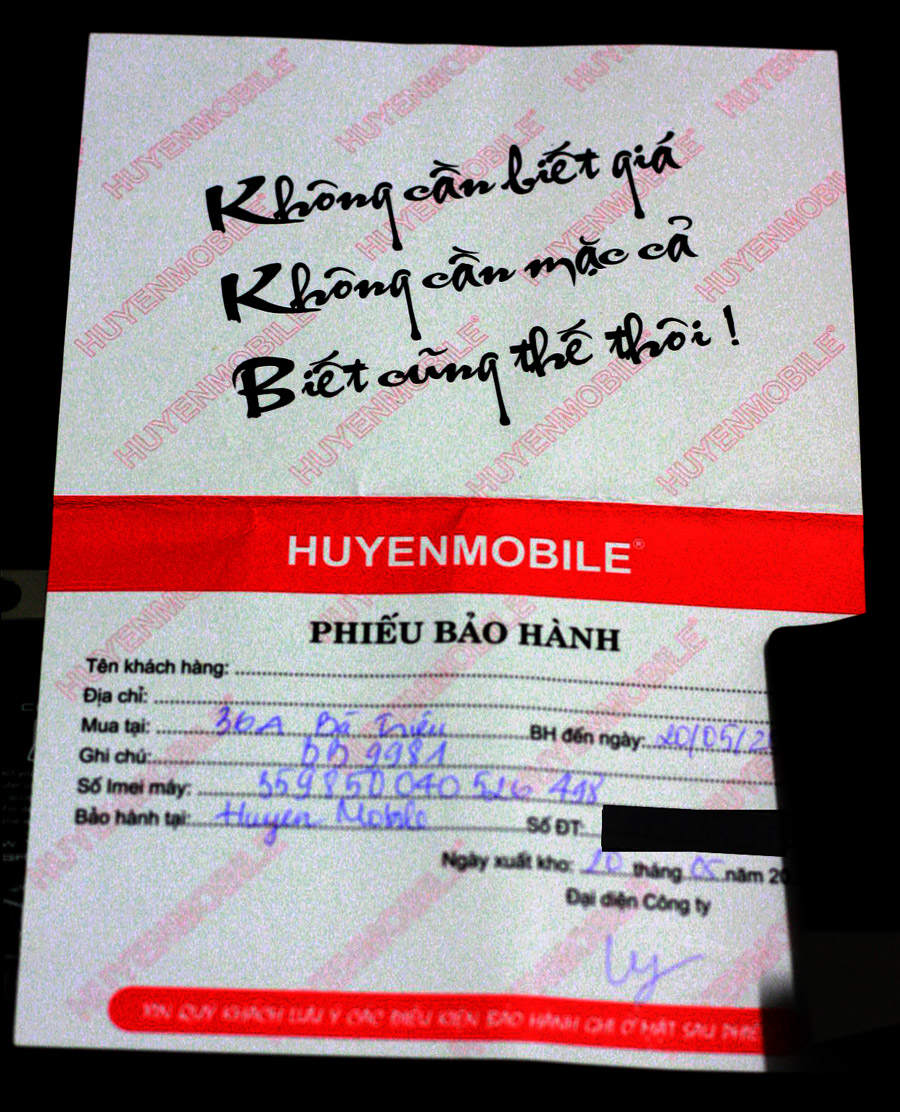 Không cần biết giá
Không cần mặc cả
Biết cũng thế thôi !
HUYENMOBILE®
PHIẾU BẢO HÀNH
Tên khách hàng:
Địa chỉ:
Mua tại: 36A Bà Triệu BH đến ngày: 20/05/2
Ghi chú: bb 9981
Số Imei máy: 359850040526 498
Bảo hành tại: Huyen Mobile Số ĐT:
Ngày xuất kho: 20 tháng 05 năm 20
Đại diện Công ty
Ly
XIN QUÝ KHÁCH LƯU Ý CÁC ĐIỀU KIỆN BẢO HÀNH GHI Ở MẶT SAU PHIẾ